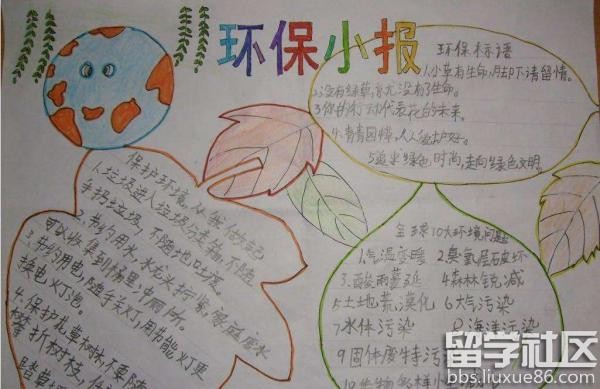 环保小报
环保标语
1.小草有生命,脚下请留情。
2.没有绿草,就无没有了生命。
3.你的行动代表花的未来。
4.青青园博,人人能护好。
5.追求绿色时尚,走向绿色文明。
保护环境,从我做起
1.垃圾进入垃圾分类箱,不随
手扔垃圾,不随地吐痰。
2.节约用水,水龙头拧紧,家庭废水
可以收集到桶里,冲厕所。
3.节约用电,随手关灯,用节能灯更
换电灯泡。
4.保护花草树木,不要随
折树枝,
全球10大环境问题
1.气温变暖 2臭氧层破坏
3.酸雨蔓延 4森林锐减
5土地荒漠化 6大气污染
7水体污染 8海洋污染
9固体废特污
10.生物多样小
留学社区
bbs.liuxue86.com